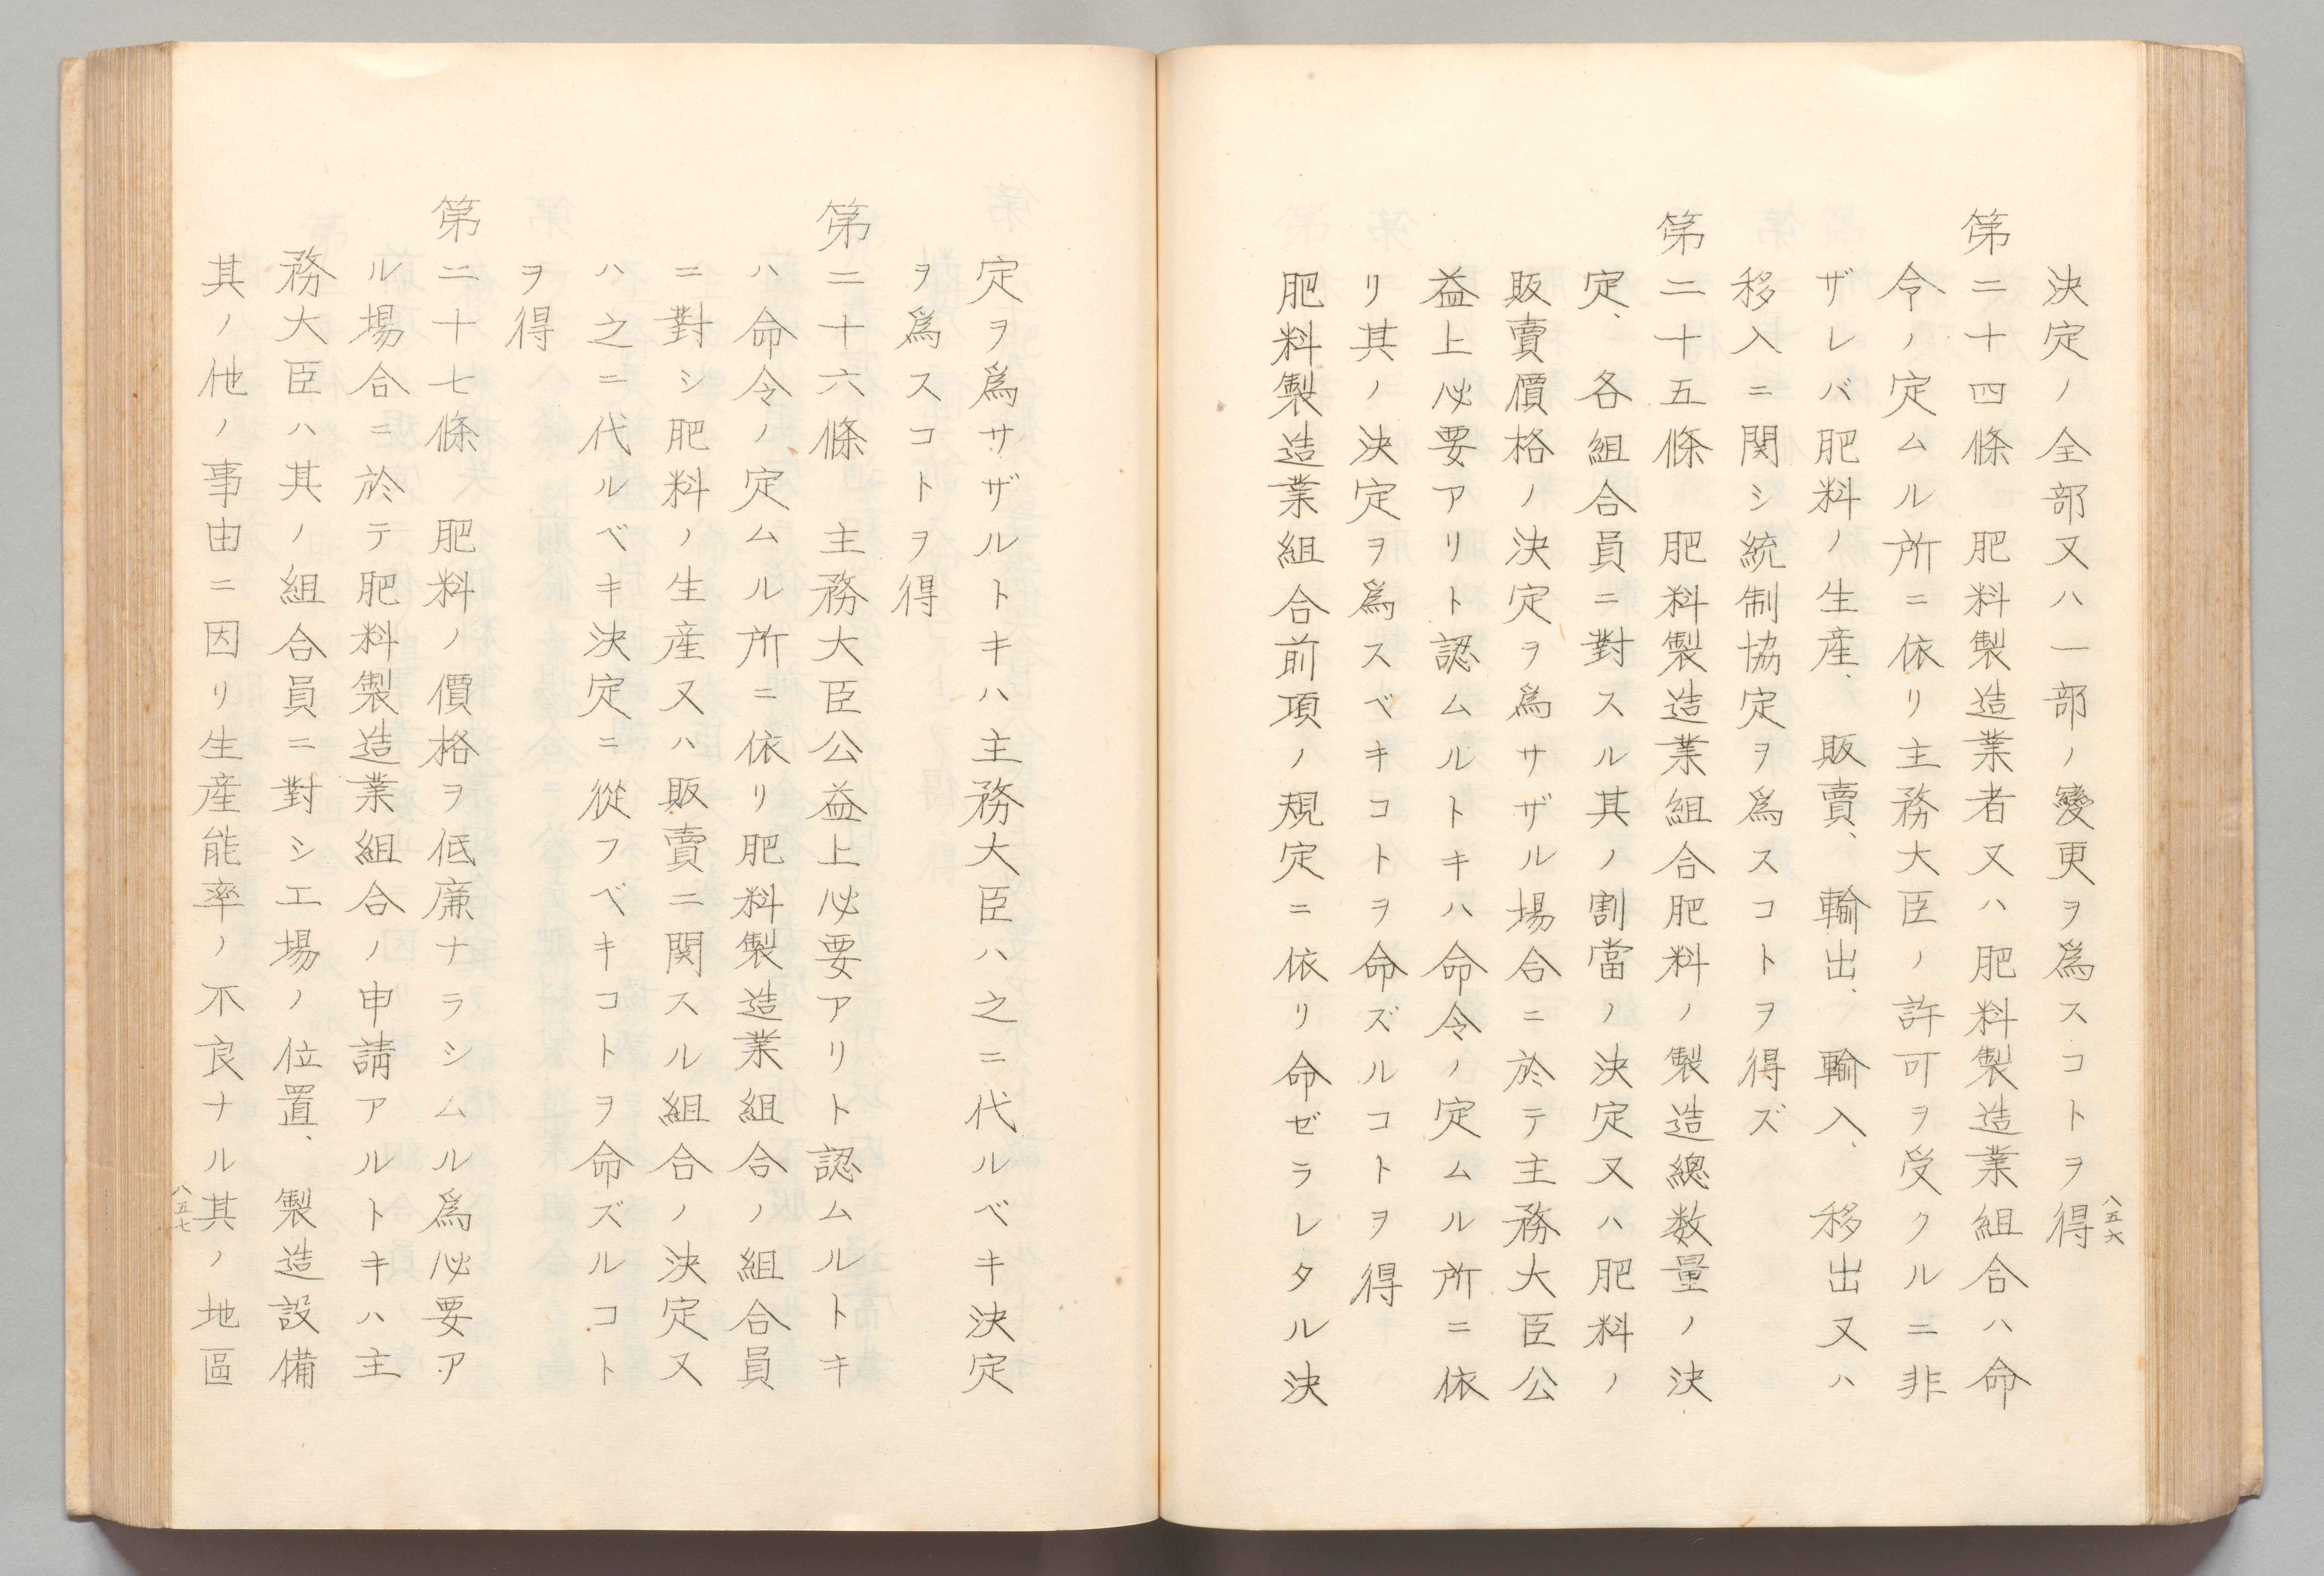 決定ノ全部又ハ一部ノ變更ヲ爲スコトヲ得
第二十四條　肥料製造業者又ハ肥料製造業組合ハ命
令ノ定ムル所ニ依リ主務大臣ノ許可ヲ受クルニ非
ザレバ肥料ノ生産、販賣、輸出、輸入、移出又ハ
移入ニ関シ統制協定ヲ爲スコトヲ得ズ
第二十五條　肥料製造業組合肥料ノ製造總数量ノ決
定、各組合員ニ對スル其ノ割當ノ決定又ハ肥料ノ
販賣價格ノ決定ヲ爲サザル場合ニ於テ主務大臣公
益上必要アリト認ムルトキハ命令ノ定ムル所ニ依
リ其ノ決定ヲ爲スベキコトヲ命ズルコトヲ得
肥料製造業組合前項ノ規定ニ依リ命ゼラレタル決
八五六
定ヲ爲サザルトキハ主務大臣ハ之ニ代ルベキ決定
ヲ爲スコトヲ得
第二十六條　主務大臣公益上必要アリト認ムルトキ
ハ命令ノ定ムル所ニ依リ肥料製造業組合ノ組合員
ニ對シ肥料ノ生産又ハ販賣ニ関スル組合ノ決定又
ハ之ニ代ルベキ決定ニ從フベキコトヲ命ズルコト
ヲ得
第二十七條　肥料ノ價格ヲ低廉ナラシムル爲必要ア
ル場合ニ於テ肥料製造業組合ノ申請アルトキハ主
務大臣ハ其ノ組合員ニ對シ工場ノ位置、製造設備
其ノ他ノ事由ニ因リ生産能率ノ不良ナル其ノ地區
八五七